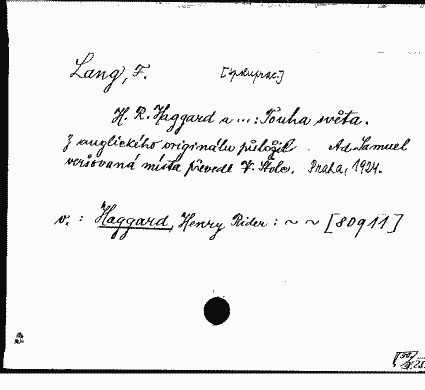 Lang, F. [spluprac.]
H. R. Haggard a ...: Touha světa.
Z anglického originálu přeložil Ad. Samuel
veršovaná místa převedl V. Stolc. Praha, 1924.
v. : Haggard, Henry Rider : ~ ~ [80911]